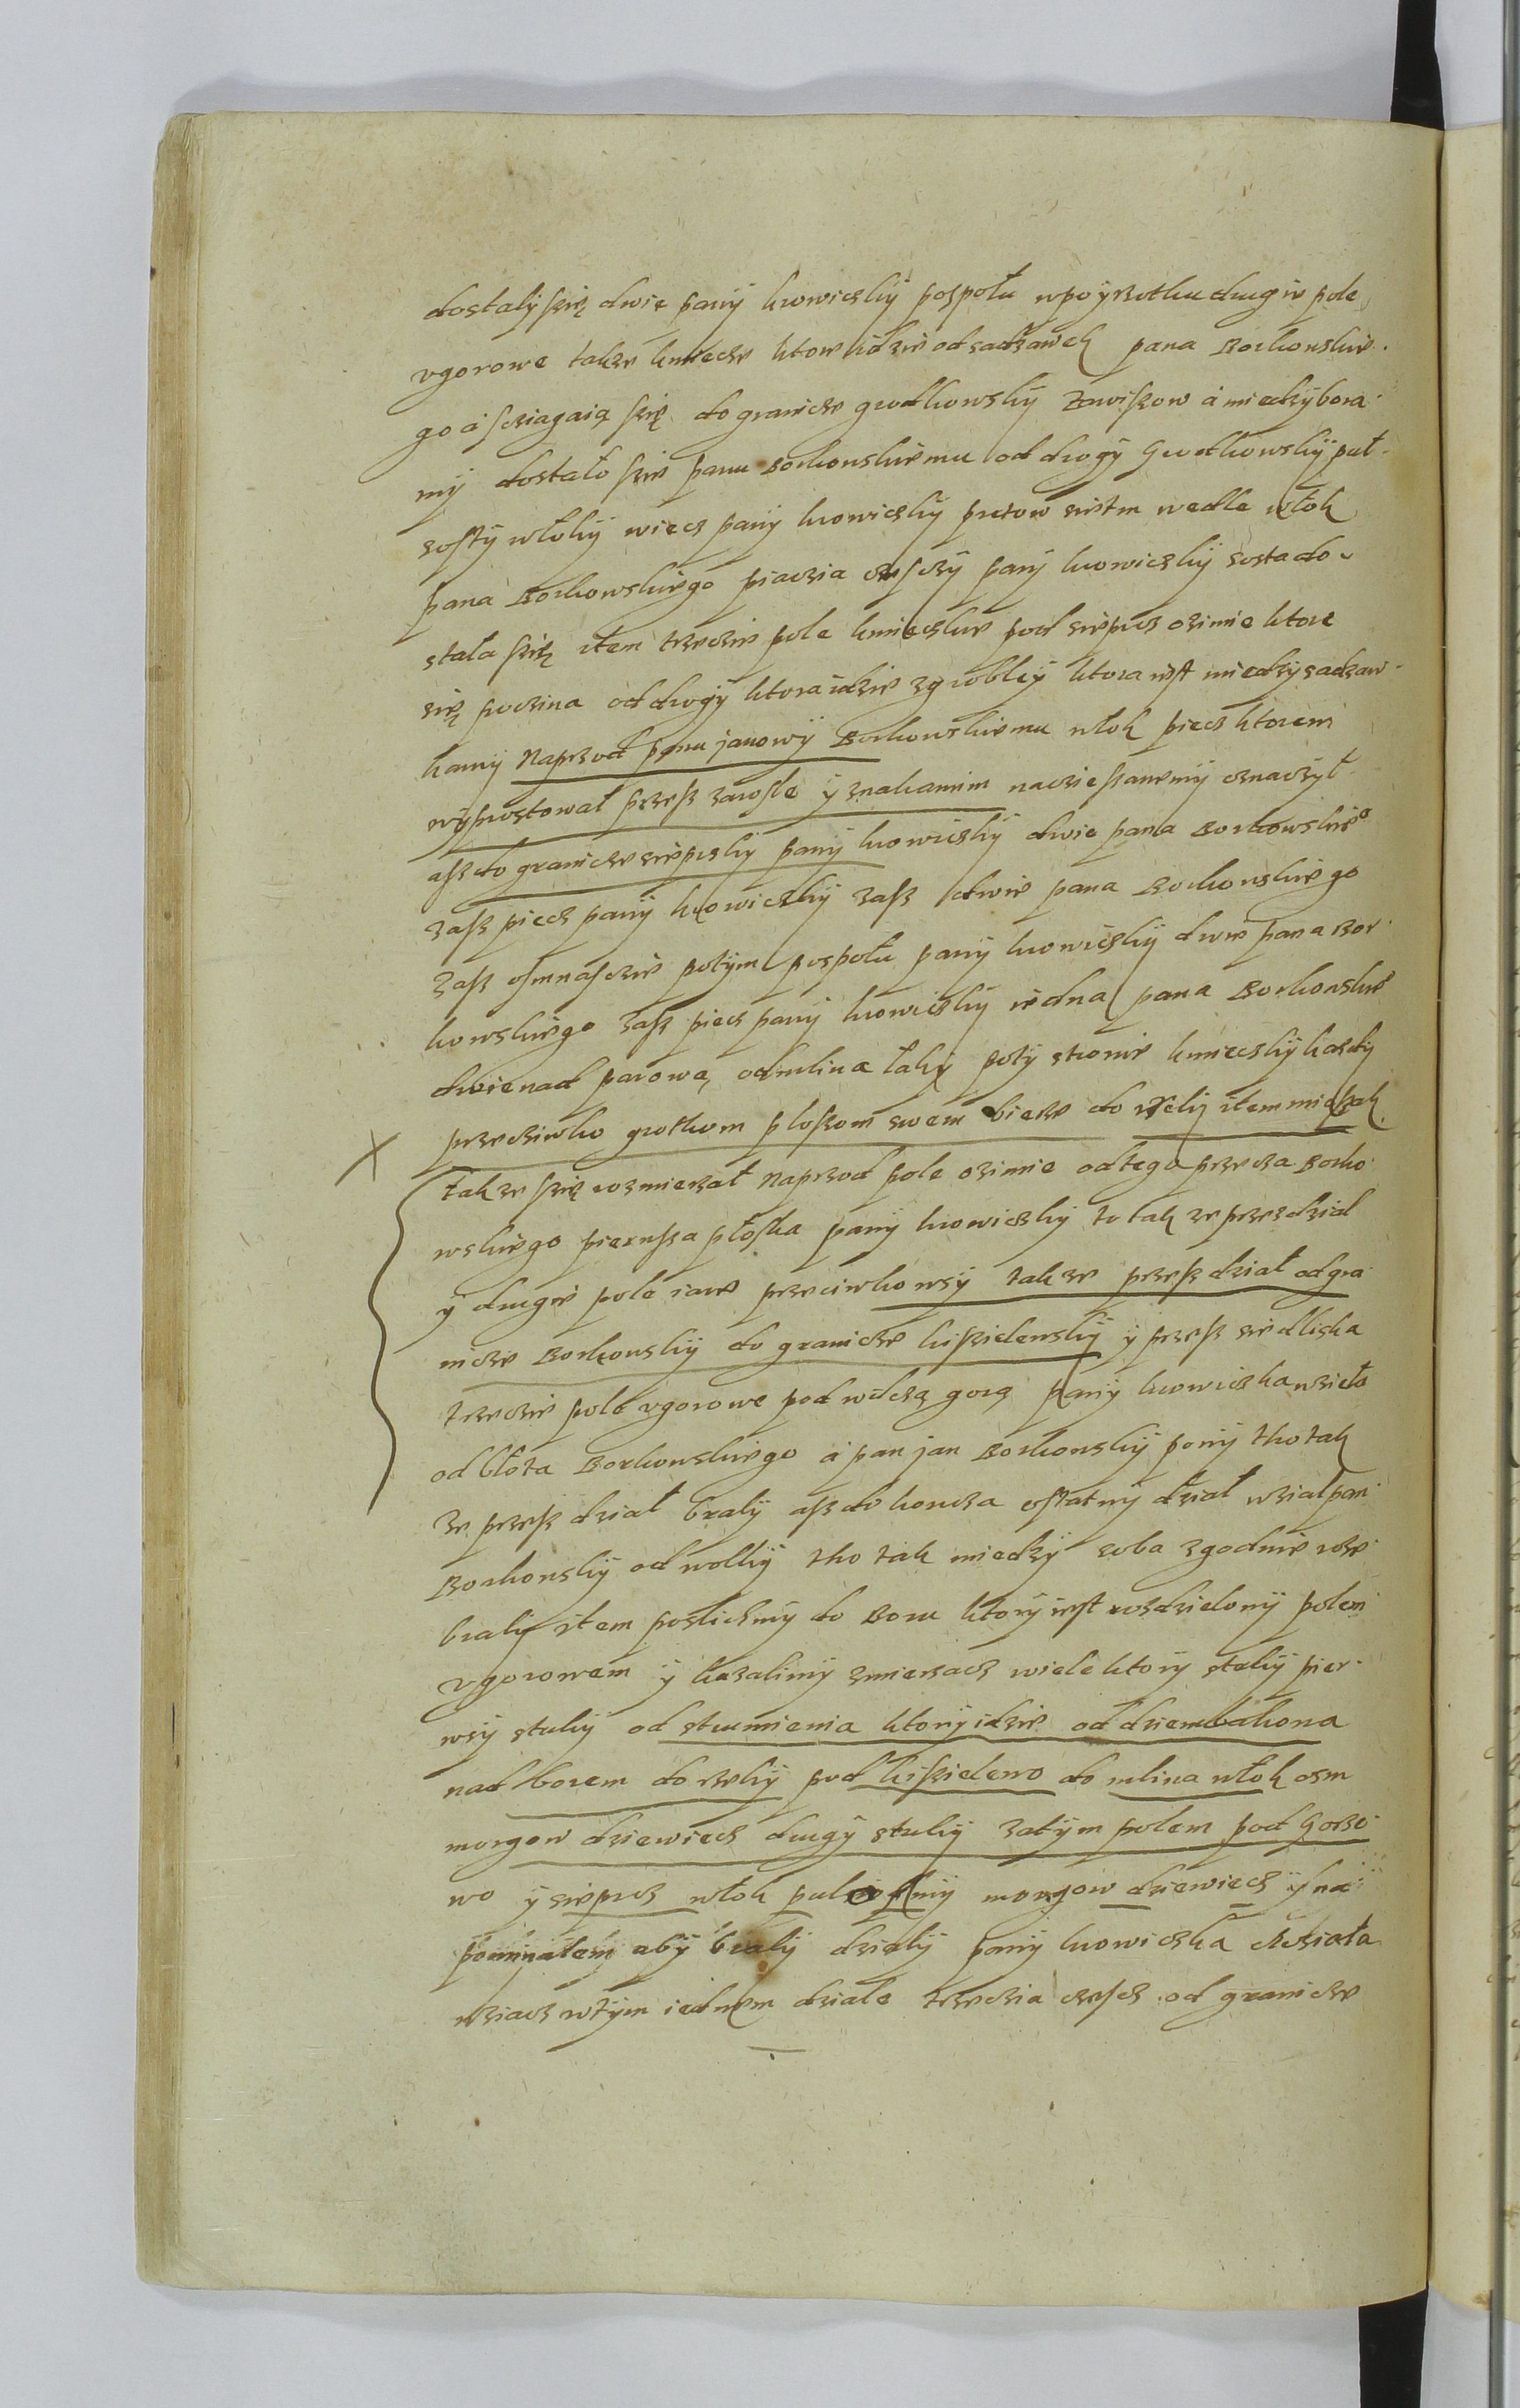 dostalÿ ſzię dwie panÿ krowiczkÿ poſpołu wpoÿrzotku drugie pole
vgorowe takze kmiecze ktore idzie od sadzawek pana Borkowskie
go á ſcziagaią ſzię do granicze grodkowskÿ Zawiſzow á miedzÿ bora
mÿ dostało ſzie panu Borkowskiemu od drogÿ Grodkowskÿ puł
szoſtÿ włokÿ wiecz panÿ krowiczkÿ pretow siedm wedle włok
pana Borkowskiego czeſczÿ panÿ krowiczkÿ szosta do
stała ſzię item trzeczie pole kmieczkie pod sieprcz ozimie ktore
się poczina od drogÿ ktora idzie z groblÿ ktora iest miedzÿ sadzaw
kamÿ Naprzod panu janowÿ Borkowskiemu włok piecz ktorem
wÿprostował przeſz zaroſle ÿ znakamim nacziesanemÿ oznaczÿł
aſz do granicze sieprskÿ panÿ krowiczkÿ dwie pana Borkowskie°
zaſz piecz panÿ krowiczkÿ zaſz dwie pana Borkowskiego
zaſz oſmnaſczie potÿm poſpołu panÿ krowiczkÿ dwie pana Bor
kowskiego zaſz piecz panÿ krowiczkÿ iedna pana Borkowskie
dwie nad parową od mlina takÿ potÿ stronie kmieczkÿ kazdÿ
przecziwko grotkom ploſzom swem bierze do rzekÿ item
takze ſzię rozmierzał naprzod pole ozimie od tego Borko
wskiego pierwſza płoſka panÿ krowiczkÿ to tak ze przezdział
ÿ drugie pole iare przeciwko wsÿ takze przeſz dział od gra
nicze Borkowskÿ do granicze kiſzielewskÿ ÿ przeſz siedliska
trzeczie pole vgorowe pod wilczą gorą panÿ krowiczka wzieła
od błota Borkowskiego á pan jan Borkowskÿ ponÿ tho tak
ze przeſz dział bralÿ aſz do koncza oſtatnÿ dział wział pan
Borkowskÿ od wolkÿ tho tak miedzÿ soba zgodnie roze
bralÿ item poślichmÿ do Boru ktorÿ iest rozdzielonÿ polem
vgorowem ÿ kazalimÿ zmierzacz wiele ktorÿ stukÿ pier
wsÿ stukÿ od strumienia ktorÿ idzie od dziembakowa
nad borem do rzekÿ pod kiſzielewo do mlina włok osm
morgow dziewiecz drugÿ stukÿ zatÿm polem pod Gorze
wo ÿ sieprcz włok morgow dziewiecz ÿ na
pominałem abÿ bralÿ dziełÿ panÿ krowiczka chcziała
wziacz wtÿm iednem dziale trzeczia czeſcz od granicze